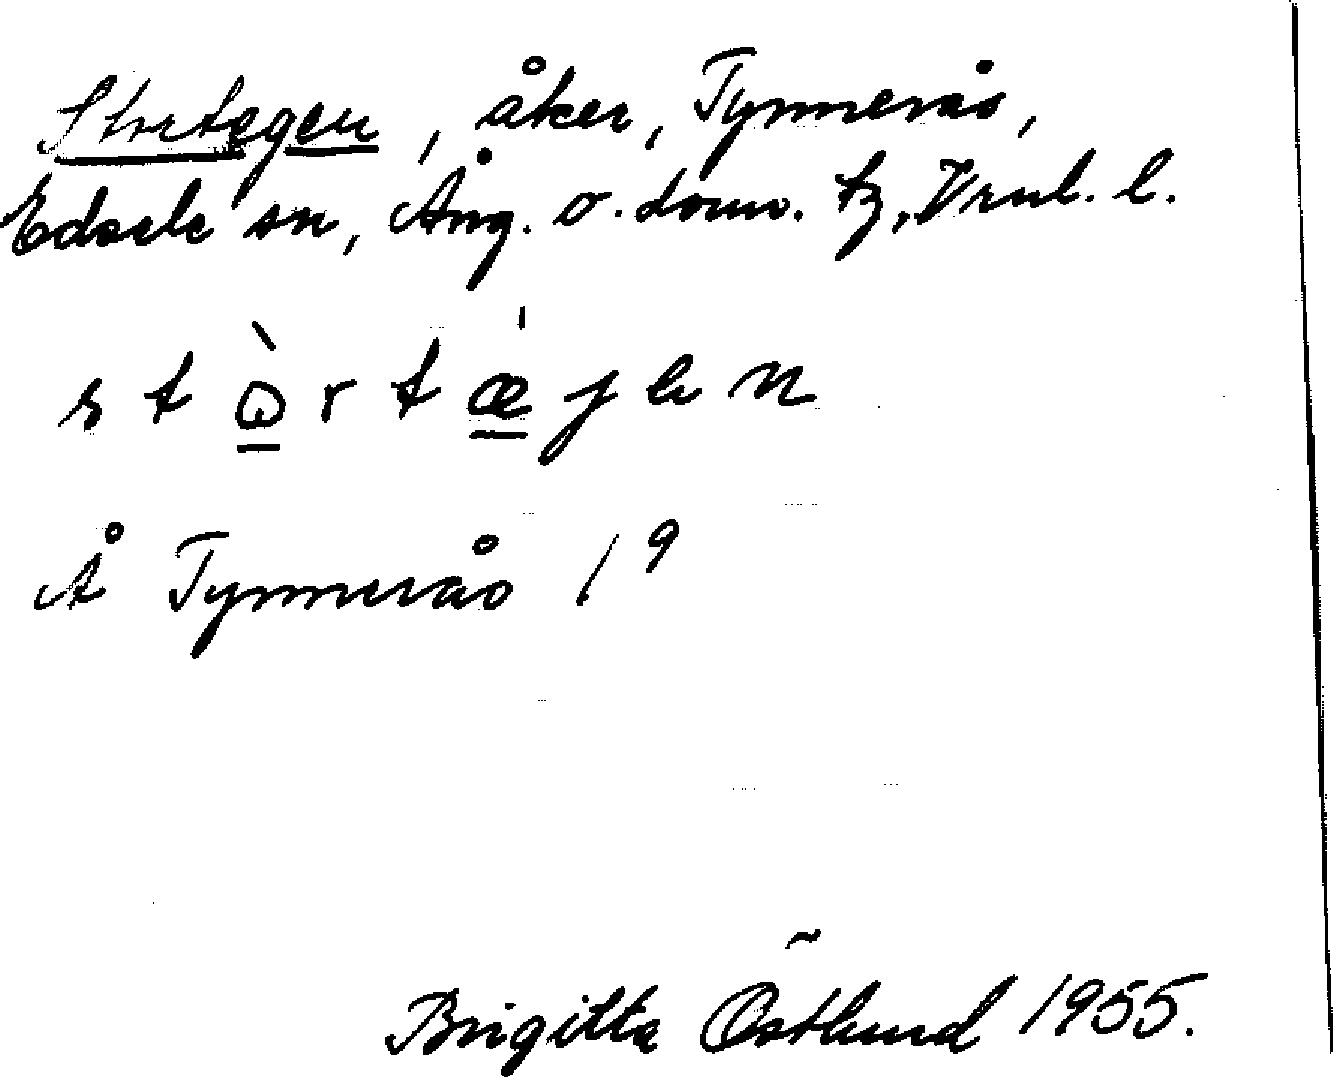 Stortegen, åker, Tynnerås,
Edsele sn, Ång. v. doms. tg, Vrnl. l.
s t ò r t æ̲ j e n
Å Tynnerås 1⁹
Brigitta Östlund 1955.